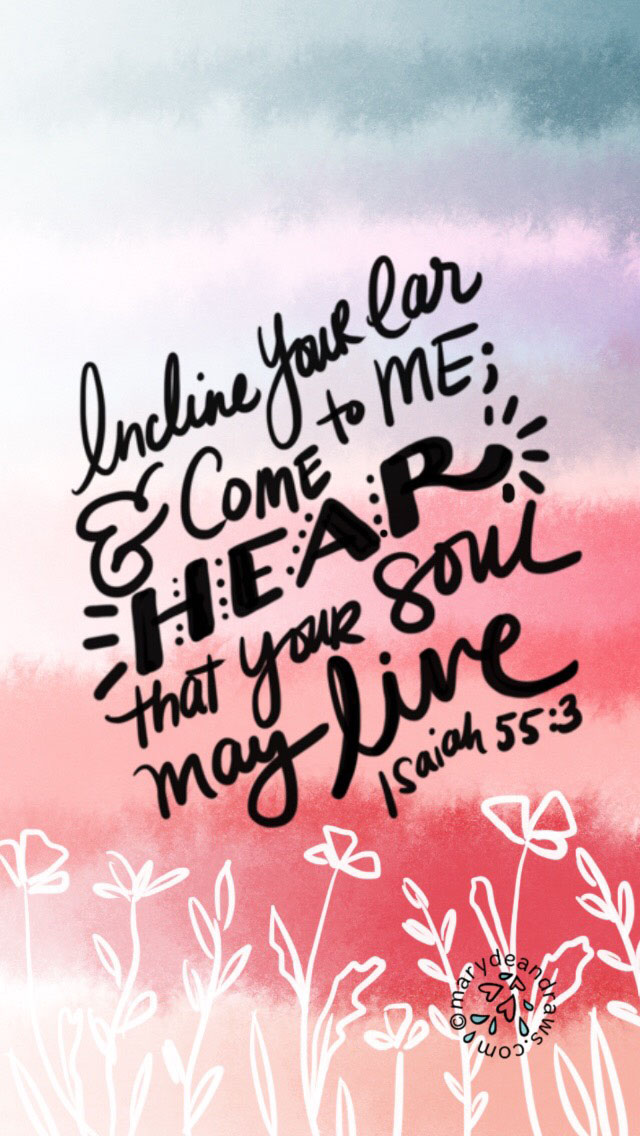 Incline your ear
& COME to ME;
HEAR
that your soul
may live
Isaiah 55:3
©marydeandraws.com